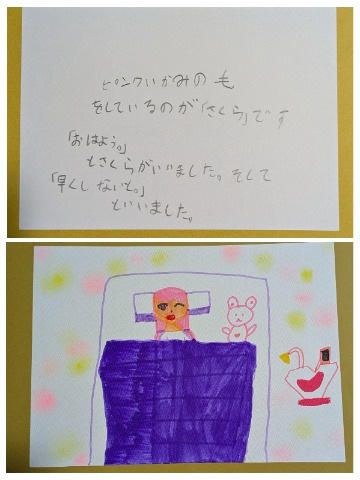 ピンクいかみのも
をしているのが「さくら」です
「おはよう。」
とさくらがいいました。そして
「早くしないと。」
といいました。